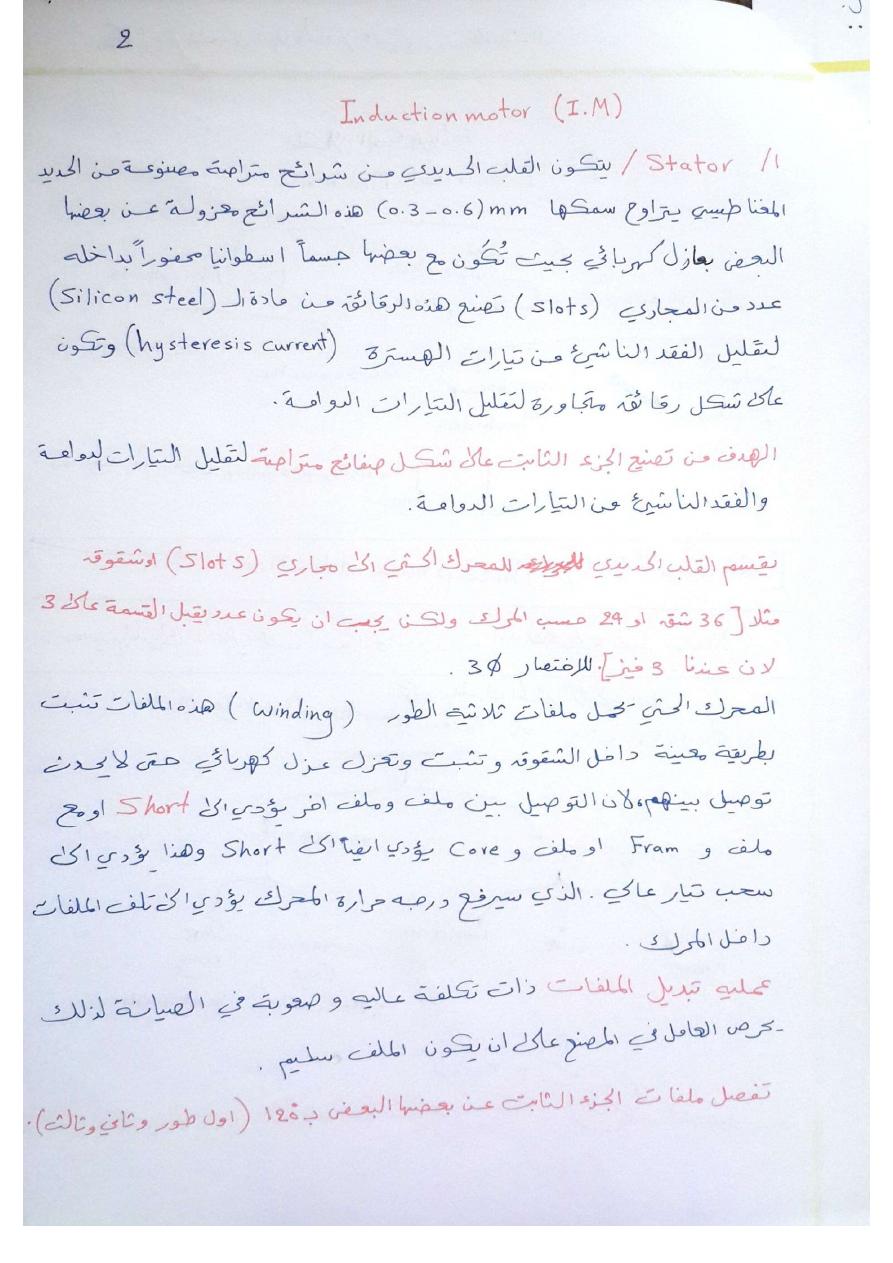 2
Induction motor (I.M)
1/ Stator / يتكون القلب الحديدي من شرائح متراصة مصنوعة من الحديد
المغناطيسي يتراوح سمكها (0.3 - 0.6) mm هذه الشرائح معزولة عن بعضها
البعض بعازل كهربائي بحيث تُكَون مع بعضها جسماً اسطوانيا محفوراً بداخله
عدد من المجاري (slots) تصنع هذه الرقائق من مادة الـ (Silicon steel)
لتقليل الفقد الناشئ من تيارات الهسترة (hysteresis current) وتكون
على شكل رقائق متجاورة لتقليل التيارات الدوامة.
الهدف من تصنيع الجزء الثابت على شكل صفائح متراصة لتقليل التيارات الدوامة
والفقد الناشئ عن التيارات الدوامة.
يقسم القلب الحديدي للمحرك الحثي الى مجاري (Slots) او شقوق
مثلا [36 شق او 24 حسب المحرك ولكن يجب ان يكون عدد يقبل القسمة على 3
لان عندنا 3 فيز]. للاختصار 3Ø .
المحرك الحثي يحمل ملفات ثلاثية الطور (winding) هذه الملفات تثبت
بطريقة معينة داخل الشقوق وتثبت وتعزل عزل كهربائي حتى لا يحدث
توصيل بينهم، لان التوصيل بين ملف وملف اخر يؤدي الى Short او مع
ملف و Fram او ملف و Core يؤدي ايضاً الى Short وهذا يؤدي الى
سحب تيار عالي . الذي سيرفع درجه حرارة المحرك يؤدي الى تلف الملفات
داخل المحرك .
عمليه تبديل الملفات ذات تكلفة عاليه و صعوبة في الصيانة لذلك
يحرص العامل في المصنع على ان يكون الملف سليم .
تفصل ملفات الجزء الثابت عن بعضها البعض بـ 120° (اول طور وثاني وثالث).